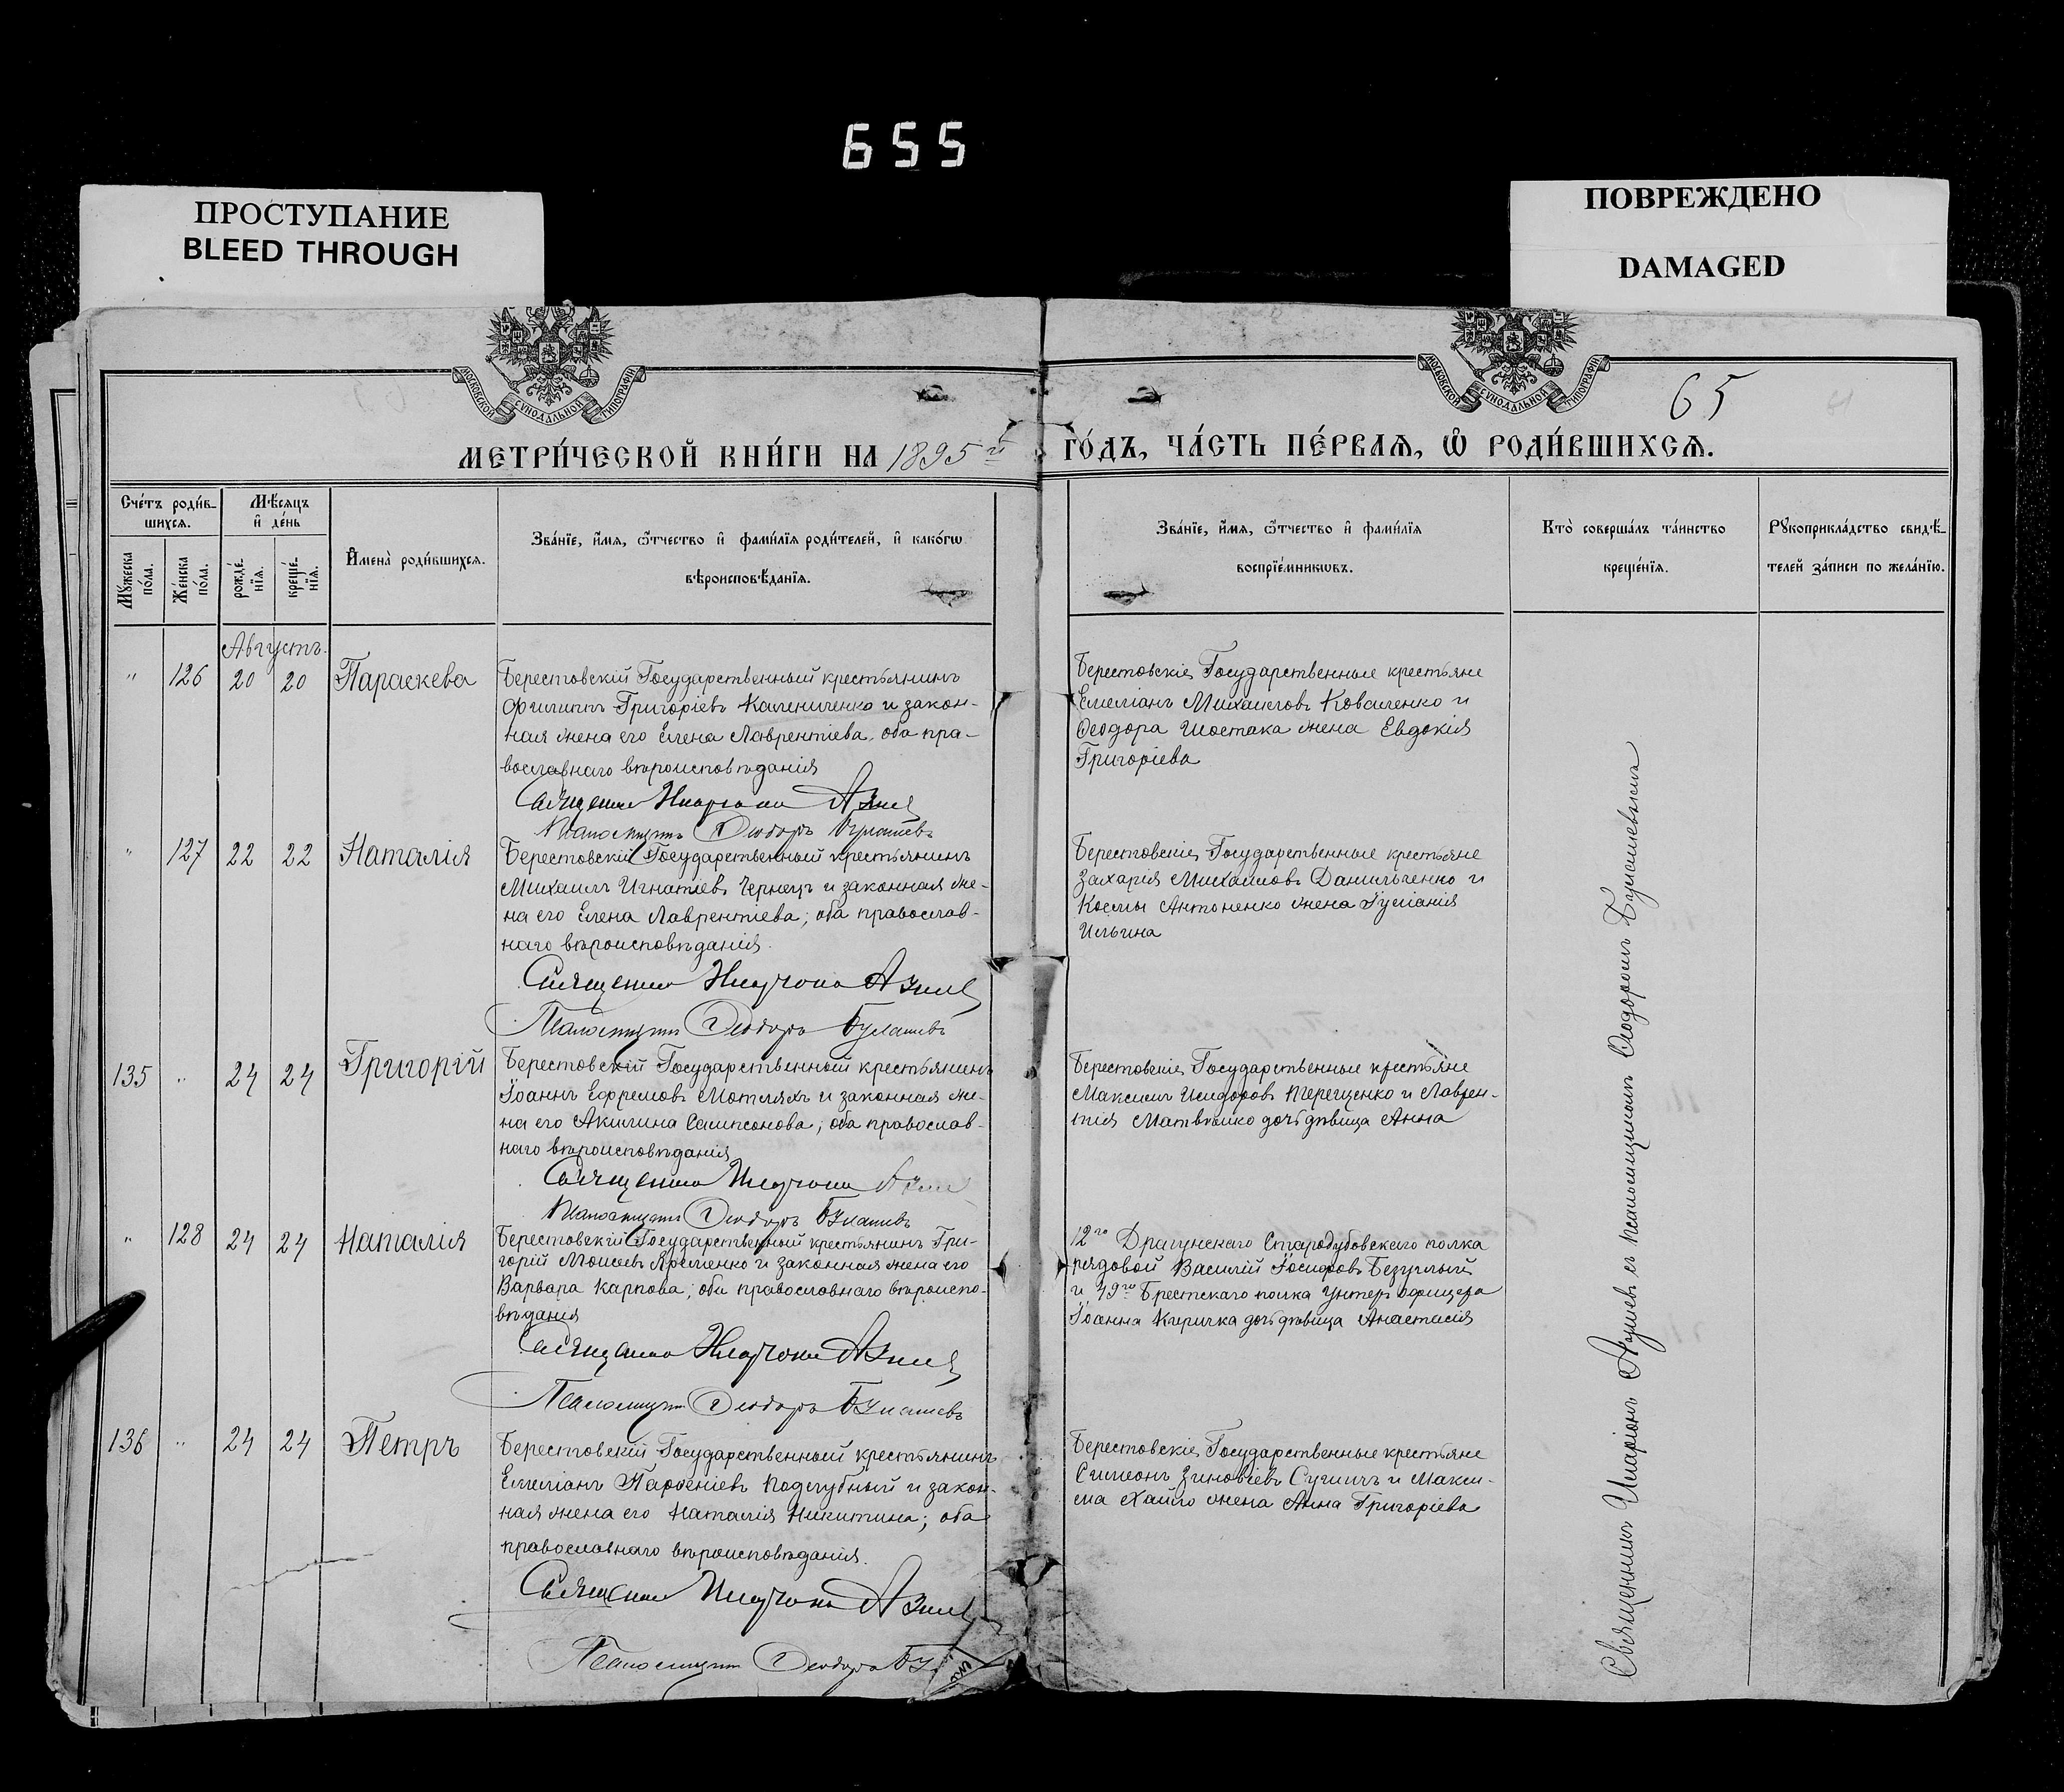 655
ПРОСТУПАНИЕ
BLEED THROUGH
ПОВРЕЖДЕНО
DAMAGED
МОСКОВСКОЙ СѴНОДАЛЬНОЙ ТИПОГРАФІИ
МОСКОВСКОЙ СѴНОДАЛЬНОЙ ТИПОГРАФІИ
65
МЕТРИ́ЧЕСКОЙ КНИ́ГИ НА 1895й ГО́ДЪ, ЧА́СТЬ ПЕ́РВАЯ, Ѡ҆ РОДИ́ВШИХСЯ.
Сче́тъ роди́в-
шихся.
Мѣ́сяцъ
и҆ де́нь
Мꙋ́жеска
по́ла.
Же́нска
по́ла.
рожде́-
нїя.
креще́-
нїя.
И҆мена̀ роди́вшихся.
Зва́нїе, и҆́мя, ѻ҆́тчество и҆ фами́лїя роди́телей, и҆ како́гѡ
вѣроисповѣ́данїя.
Зва́нїе, и҆́мя, ѻ҆́тчество и҆ фами́лїя
воспрїе́мникѡвъ.
Кто̀ соверша́лъ та́инство
креще́нїя.
Рꙋкоприкла́дство свидѣ́-
телей за́писи по жела́нїю.
Августъ.
" 126 20 20 Параскева
Берестовскій Государственный крестьянинъ
Филиппъ Григоріевъ Калениченко и закон-
ная жена его Елена Лаврентіева, оба пра-
вославнаго вѣроисповѣданія
Священникъ Иларіонъ Азиев
Псаломщикъ Ѳеодоръ Булашевъ
Берестовскіе Государственные крестьяне
Емеліанъ Михаиловъ Коваленко и
Ѳеодора Шостака жена Евдокія
Григоріева
" 127 22 22 Наталія
Берестовскій Государственный крестьянинъ
Михаилъ Игнатіевъ Чернецъ и законная же-
на его Елена Лаврентіева; оба православ-
наго вѣроисповѣданія.
Священникъ Иларіонъ
Псаломщикъ Ѳеодоръ Булашевъ
Берестовскіе Государственные крестьяне
Захарія Михаиловъ Данильченко и
Космы Антоненко жена Іуліанія
Ильина
135 " 24 24 Григорій
Берестовскій Государственный крестьянинъ
Іоаннъ Ефремовъ Мотляхъ и законная же-
на его Акилина Сампсонова; оба православ-
наго вѣроисповѣданія
Священникъ Иларіонъ
Псаломщикъ Ѳеодоръ Булашевъ
Берестовскіе Государственные крестьяне
Максимъ Исидоровъ Терещенко и Лаврен-
тія Матвѣйко дочь дѣвица Анна
" 128 24 24 Наталія
Берестовскій Государственный крестьянинъ Гри-
горій Моисеевъ Яременко и законная жена его
Варвара Карпова; оба православнаго вѣроиспо-
вѣданія
Священникъ Иларіонъ
Псаломщикъ Ѳеодоръ Булашевъ
12го Драгунскаго Стародубовскаго полка
рядовой Василій Іосифовъ Безуглый
и 49го Брестскаго полка унтеръ офицера
Іоанна Киричка дочь дѣвица Анастасія
136 " 24 24 Петръ
Берестовскій Государственный крестьянинъ
Емеліанъ Парѳеніевъ Поддубный и закон-
ная жена его Наталія Никитина; оба
православнаго вѣроисповѣданія.
Священникъ Иларіонъ
Псаломщикъ Ѳеодоръ
Берестовскіе Государственные крестьяне
Симеонъ Зиновіевъ и Макси-
ма жена Анна Григоріева
Священникъ Иларіонъ съ псаломщикомъ Ѳеодоромъ